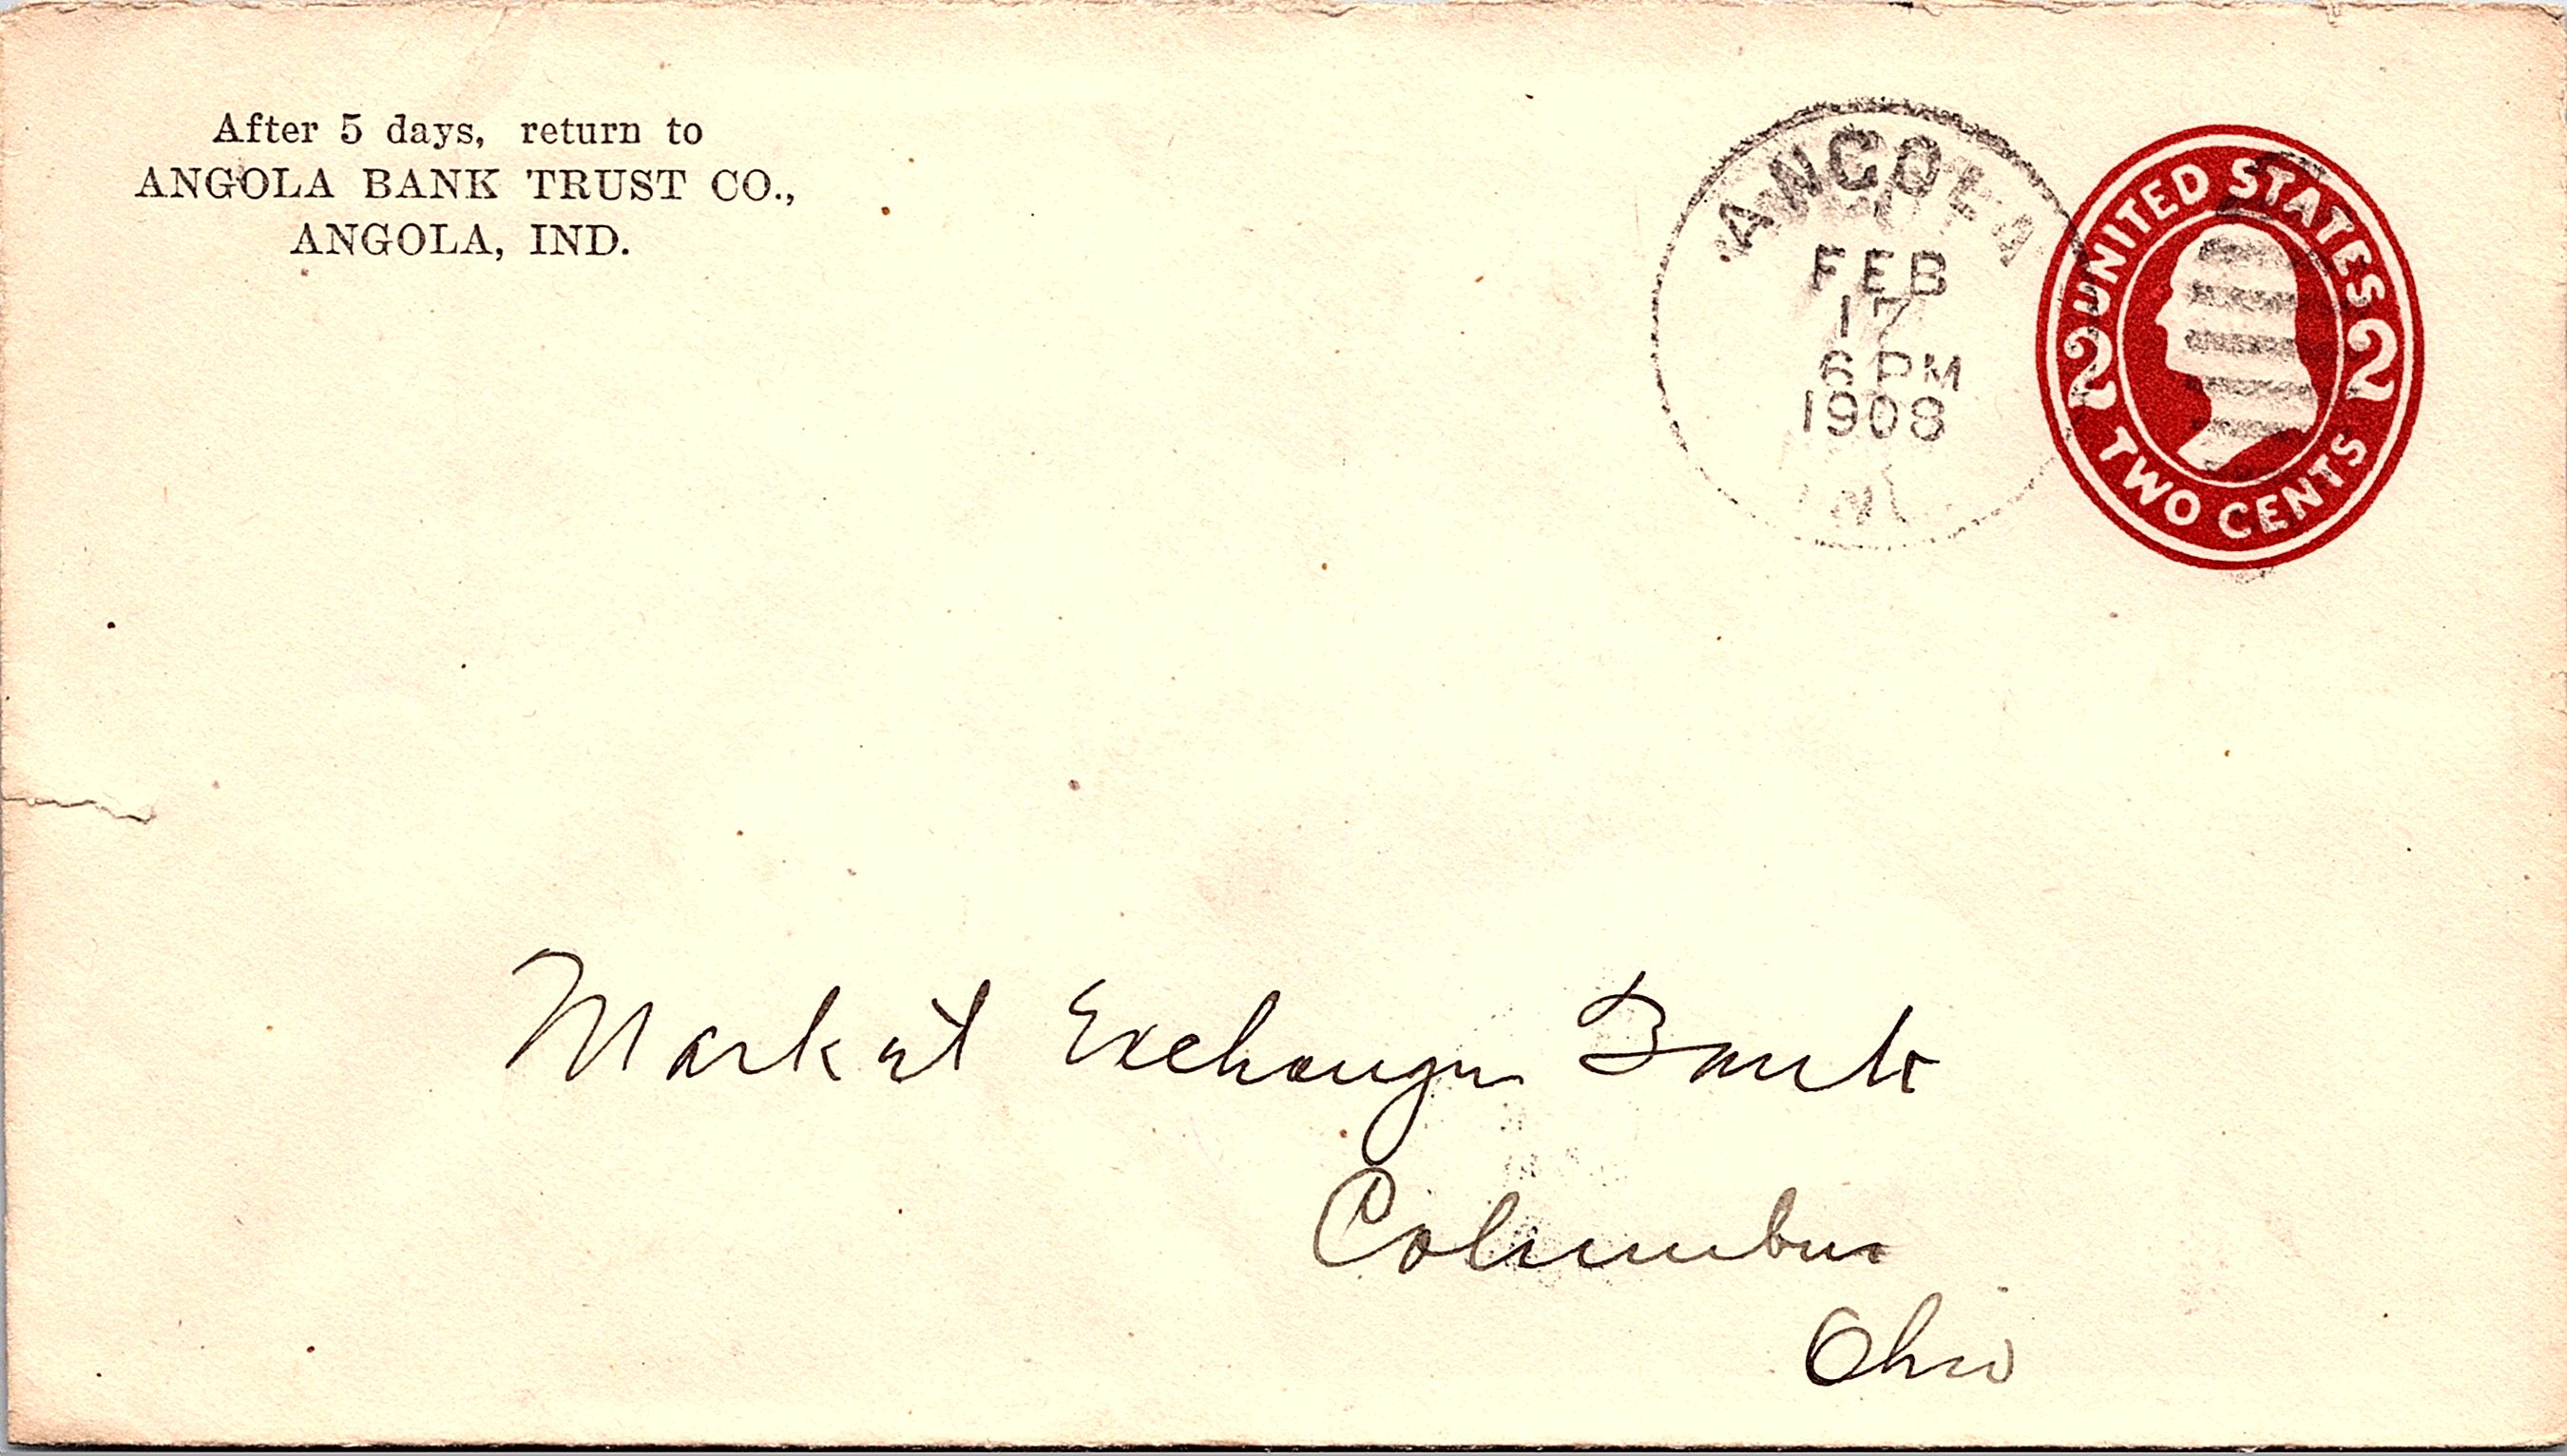 After 5 days, return to
ANGOLA BANK TRUST CO.,
ANGOLA, IND.
ANGOLA
FEB
17
6 PM
1908
IND
UNITED STATES
2 2
TWO CENTS
Market Exchange Bank
Columbus
Ohio